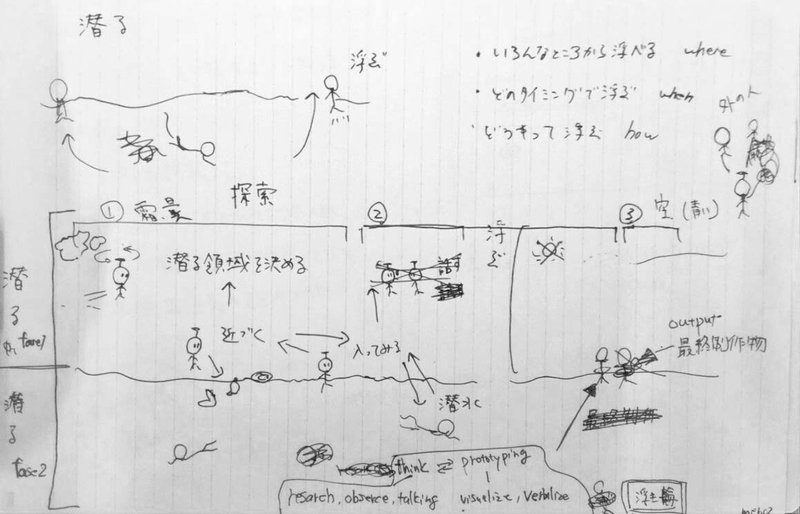 潜る
浮ぶ
・いろんなところから浮べる where
・どのタイミングで浮ぶ when
・どうやって浮ぶ how
外の人
探索
①
②
浮ぶ
③ 空(青い)
潜る領域を決める
話す
潜る
fase1
近づく
入ってみる
output
最終制作物
潜水
潜る
fase2
think ⇄ prototyping
resarch, observe, talking
visualize, verbalize